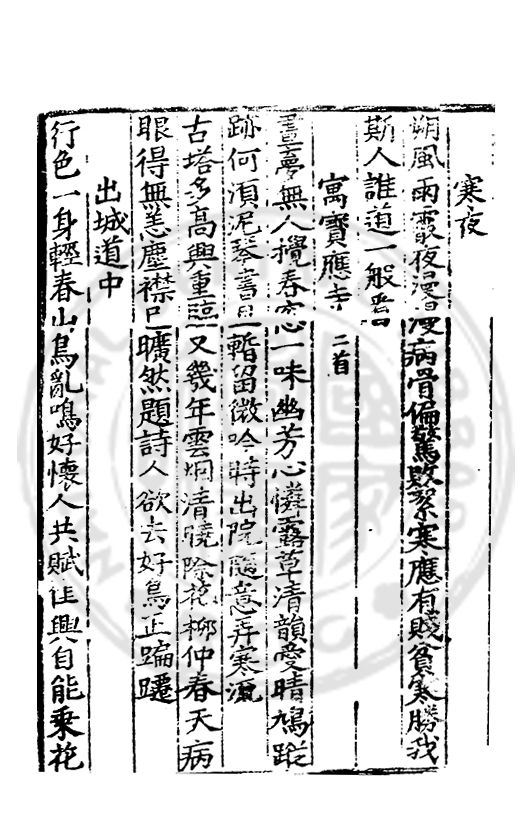 寒夜
朔風雨霰夜漫漫病骨偏驚敗絮寒應有賤貧寒勝我
斯人誰道一般看
寓寶應寺二首
夢無人攪春窓一味幽芳心憐露草清韻愛晴鳩蹤
跡何湏泥琴書且暫留微吟時出院隨意弄寒流
古塔多高興重臨又幾年雲烟清曉除花柳仲春天病
眼得無恙塵襟已曠然題詩人欲去好鳥正蹁躚
出城道中
行色一身輕春山鳥亂鳴好懷人共賦佳興自能乘花